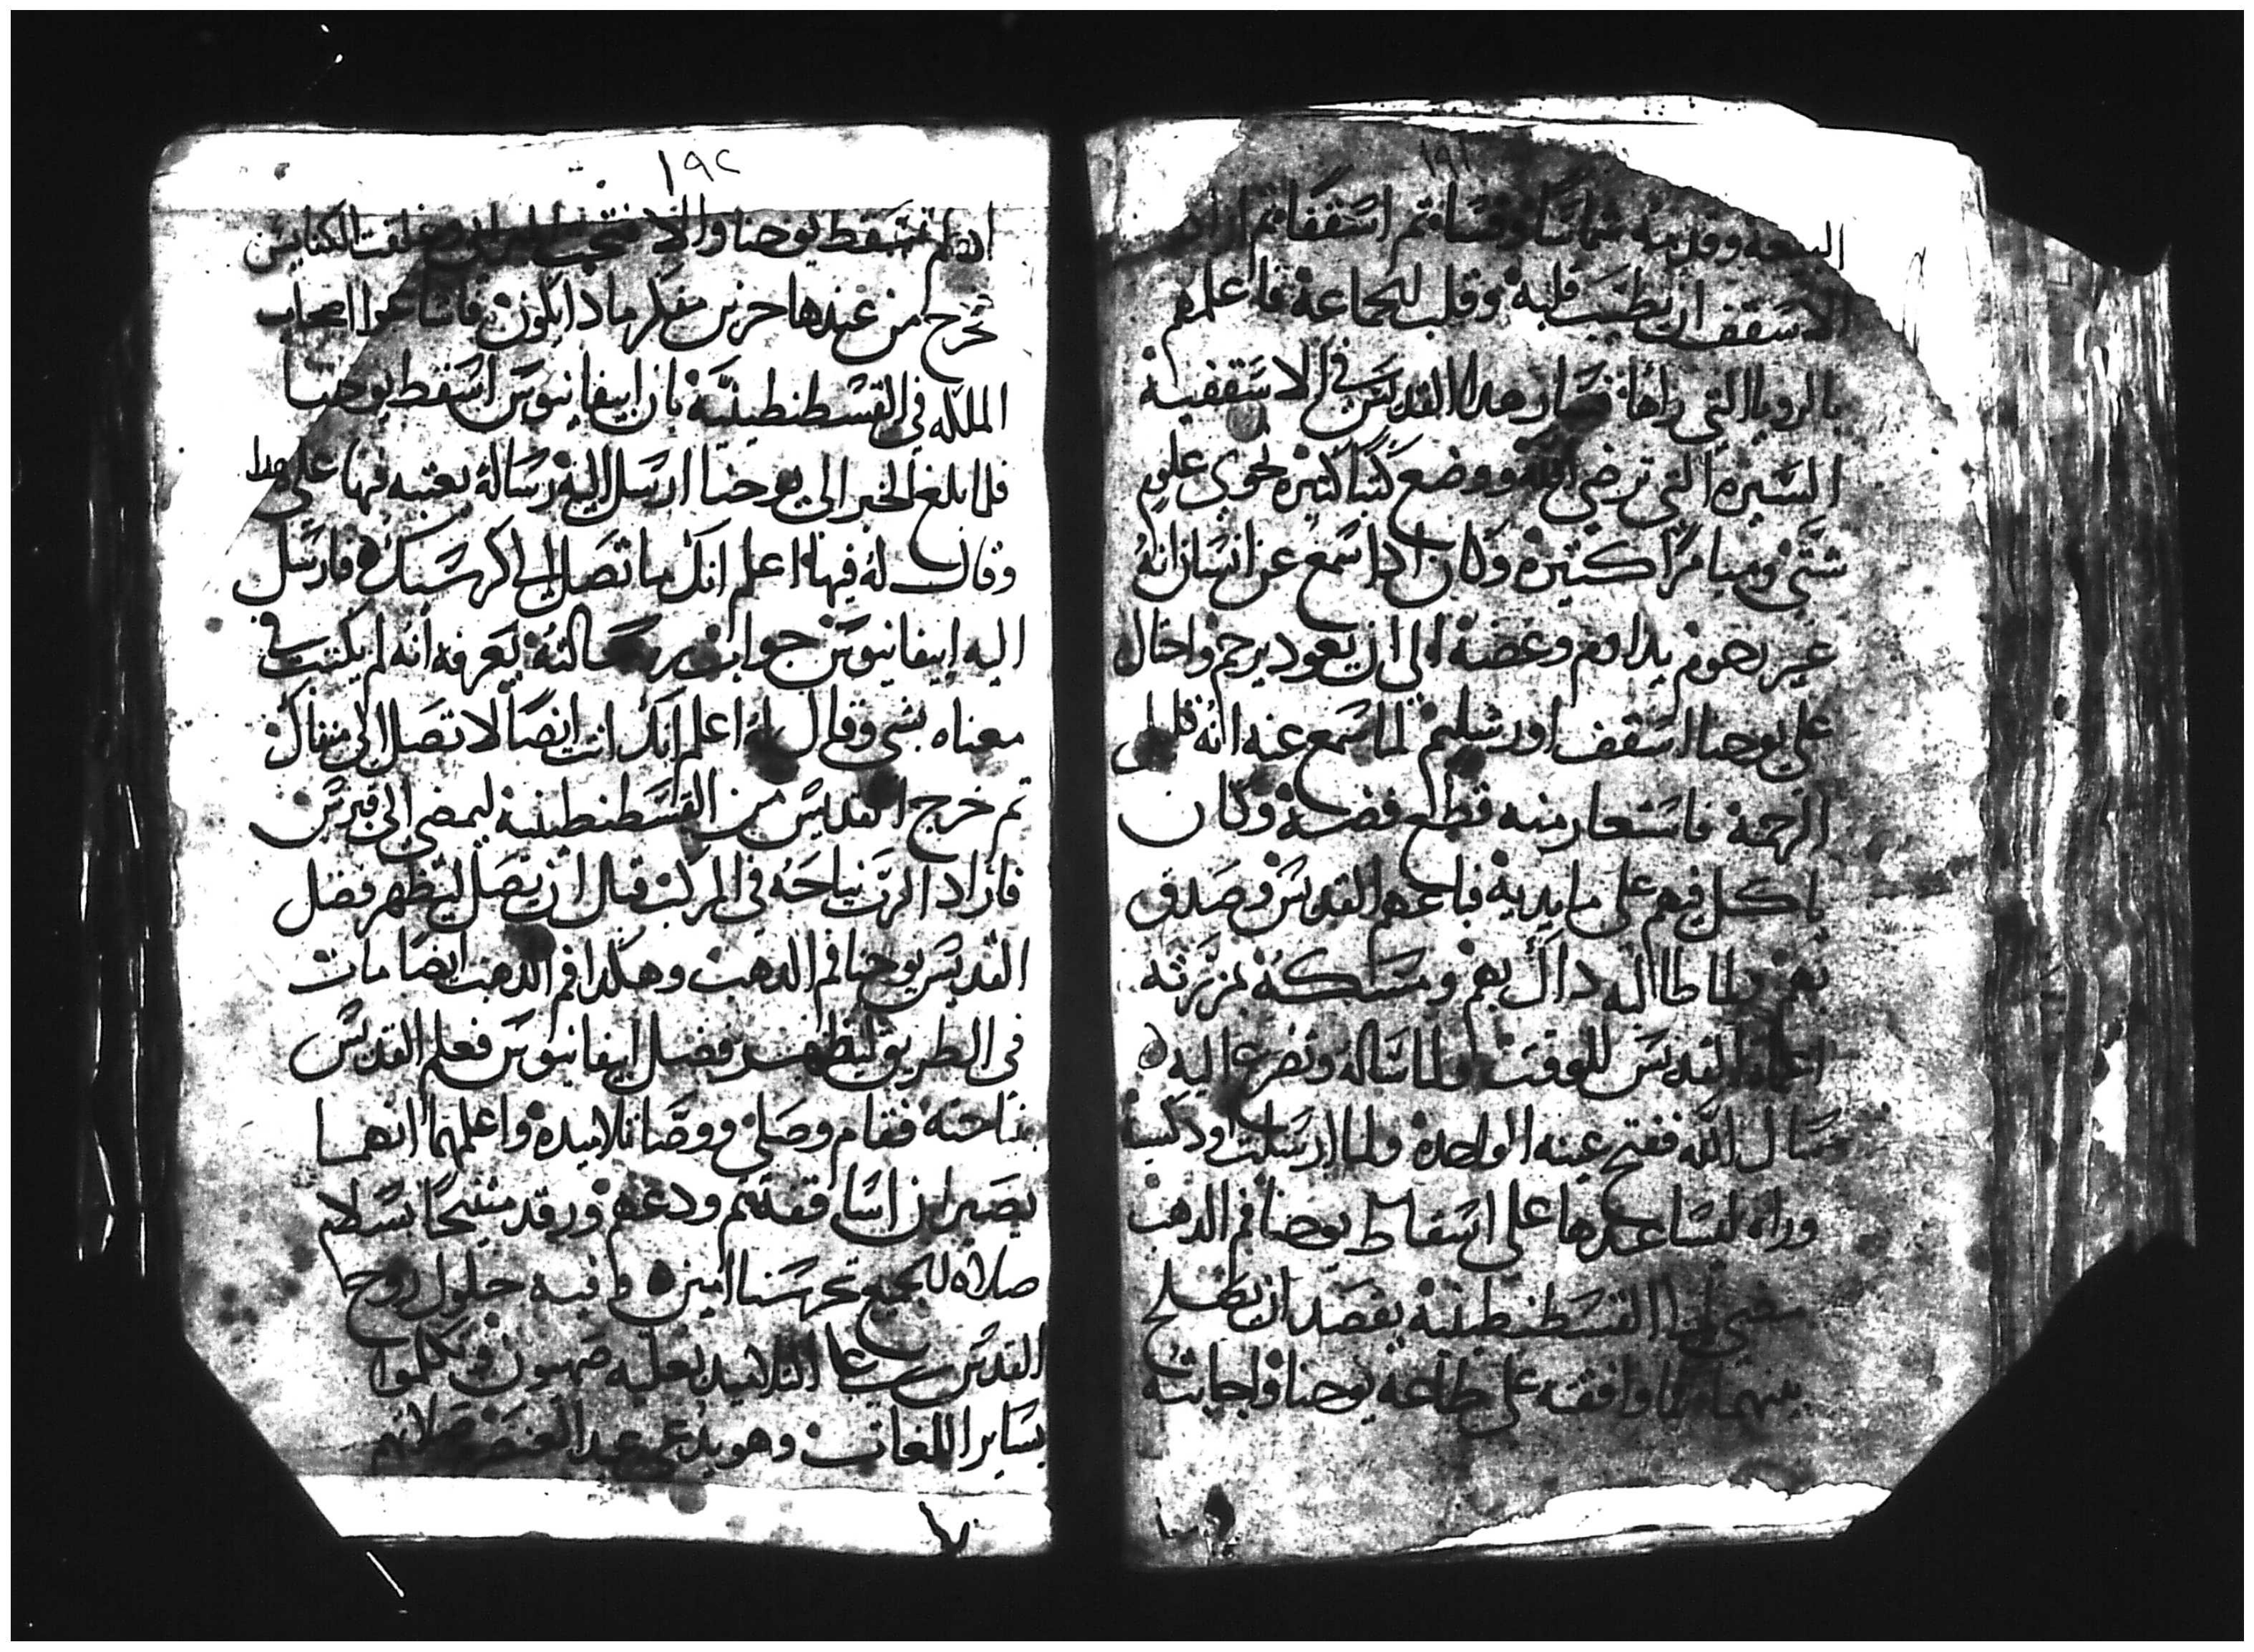 ١٩١
البيعه وقدمه شماسًا وقسًا ثم اسقفًا ثم اراد
الاسقف ان يطيب قلبه وقلب الجماعة فاعلمهم
بالرويا التي راها فسار هدا القديس في الاسقفية
السيره التي ترضي الله ووضع كتبًا كثيره تحوي علوم
شتى وميامرًا كثيره وكان ادا سمع عن انسان انهُ
غير رحوم يداوم وعضه الى ان يعود يرحم واحتال
على يوحنا اسقف اورشليم لما سمع عنه انهُ قليل
الرحمة فاستعار منه قطع فضة وكان
ياكل فيهم على مايديه فباعهم القديس وصدق
اعماه القديس للوقت ولما ساله وتضرع اليه
سال الله ففتح عينه الواحدة ولما ارسلت اودكسيه
وراه لتساعدها على اسقاط يوحنا فم الدهب
مضى الى القسطنطينية يقصد ان يصلح
بينهما وافقته على طاعة يوحنا واجابته
١٩٢
ان لم تسقط يوحنا والا فتحت البرابي وغلقت الكنايس
خرج من عندها حزين مفكر مادا يكون فاشاعوا اصحاب
الملكه في القسطنطينيه بان ابيفانيوس اسقط يوحنا
فلما بلغ الخبر الى يوحنا ارسل اليه رسالة يعتبه فيها على هدا
وقال لهُ فيها اعلم انك ما تصل الى كرسيك فارسل
اليه ابيفانيوس جواب رسالته يعرفه انه لم يكتب في
معناه بشي وقال له اعلم انك انت ايضًا لا تصل الى منفاك
تم خرج القديس من القسطنطينية ليمضي الى قبرس
فاراد الرب نياحته في المركب قبل ان يصل ليظهر فضل
القديس يوحنا فم الدهب وهكدا فم الدهب ايضًا مات
في الطريق ليظهر فضل ابيفانيوس فعلم القديس
بنياحته فقام وصلى ووصا تلاميده واعلمهما انهما
يصيران اساقفه تم ودعهم ورقد متنيحًا بسلام
صلاه للجميع تحرسنا امين وفيه حلول روح
القدس على التلاميد بعلية صهيون وتكلموا
بساير اللغات وهو يدعى عيد العنصره صلاتهم